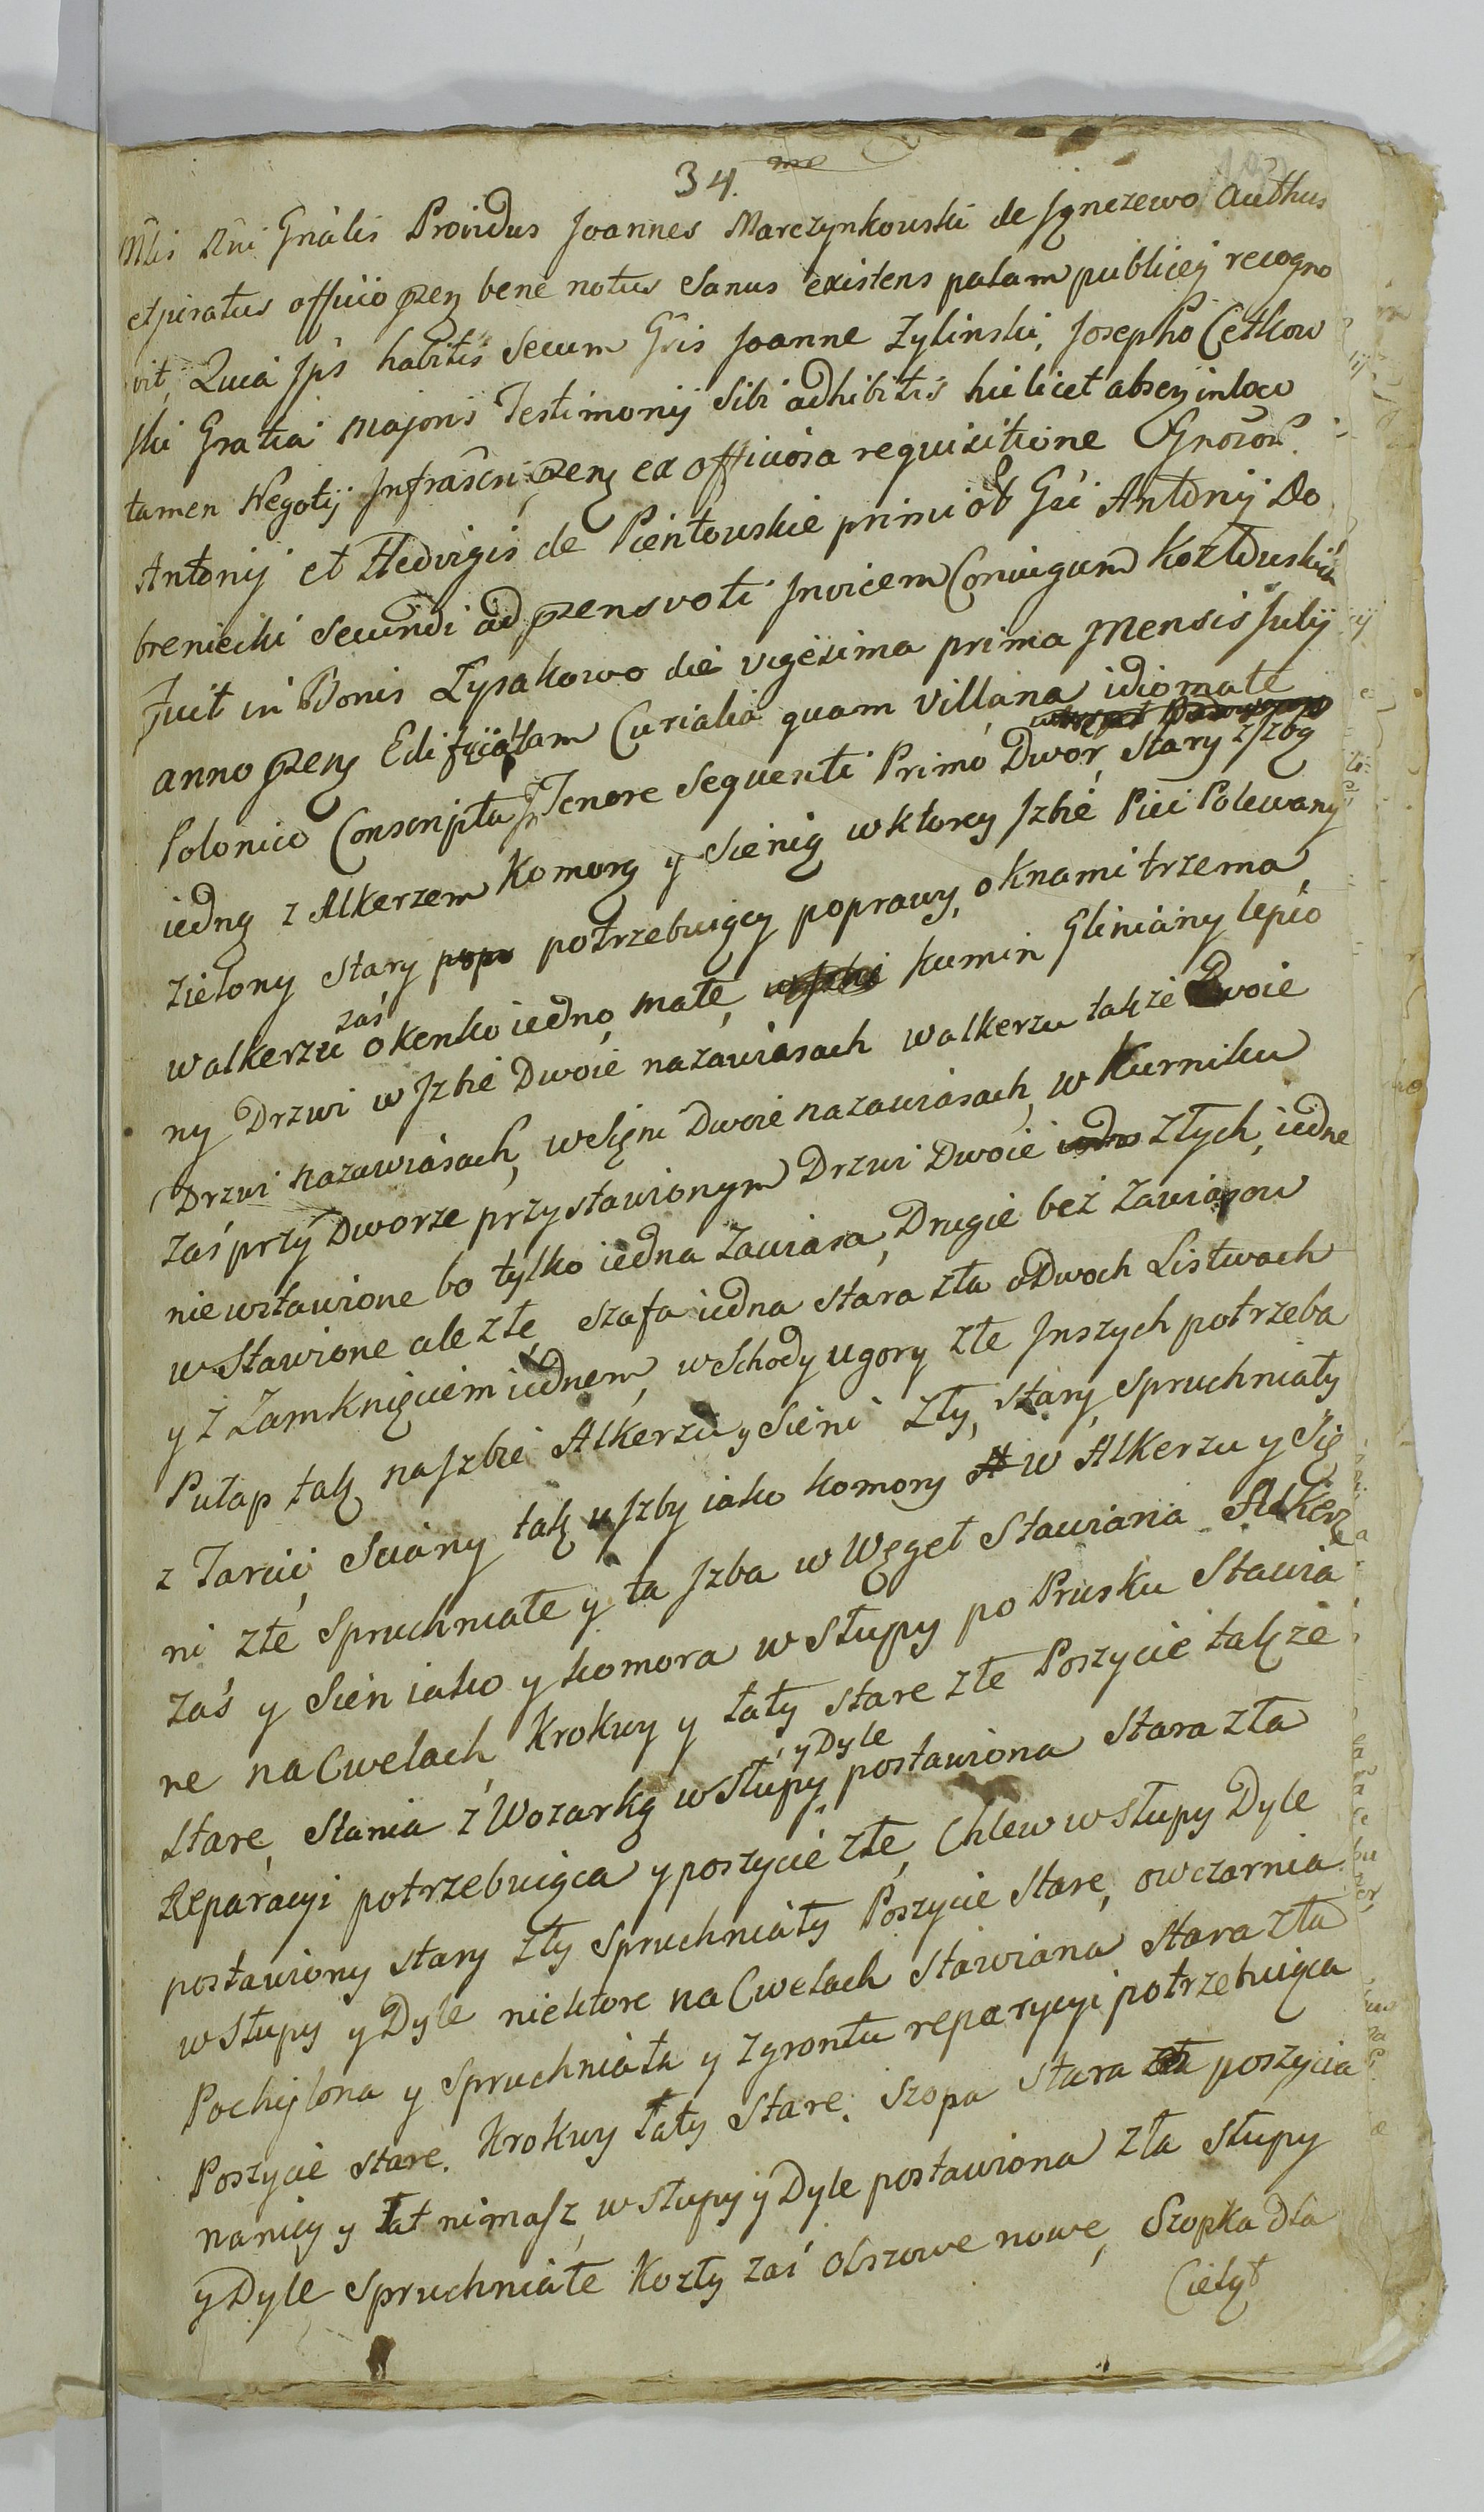 34. me
Mlis Rni Gnalis Providus Joannes Marczynkowski de Jgnczewo Authus
et juratus officio pzeng bene notus Sanus existens palam publiceq recogno
vit, Quia Jps habitis Secum Gsis Joanne Zylinski, Josepho Cetkow
ski Gratia majoris Testimonij Sibi adhibitis hic licet absen in loco
tamen Negotij Jnfrascri pzeng ex officiosa requisitione Gnosor
Antonij et Hedvigis de Pientowskie primi ob Gsi Antonij Do
breniecki Secundi ad pzens voti Jnvicem Coniugum Kozłowskich
Fuit in Bonis Łysakowo die vigesima prima Mensis Julij
anno pzeng Edificia tam Curialia quam Villana idiomate
Polonico Conscripta Jn Tenore Sequenti Primo Dwor, Stary z Jzbą
iedną z Alkerzem Komorą y Sienią w ktorey Jzbie Piec Polewany
zielony stary potrzebuiący poprawy, oknami trzema,
w alkerzu zaś okenko iedno, małe, Kumin Gliniany lepio
ny Drzwi w Jzbie Dwoie na zawiasach w alkerzu także Dwoie
Drzwi na zawiasach, w Sięni Dwoie na zawiasach, w Kurniku
zaś przy Dworze przystawionym Drzwi Dwoie złych, iedne
nie wstawione bo tylko iedna zawiasa, Drugie bez zawiasow
wstawione ale złe, szafa iedna stara zła o Dwoch Listwach
y z Zamknięciem iednem, wschody u gory złe Jnszych potrzeba
Pułap tak na Jzbie Alkerzu y Sieni zły, stary, spruchniały
z Tarcic, Sciany tak u Jzby iako komory w Alkerzu y Się
ni złe Spruchniałe y ta Jzba w Węgeł Stawiana Alkerz
zaś y Sien iako y komora w Słupy po Prusku Stawia
ne na Cwelach Krokwy y Łaty stare złe Poszycie także
stare, Stania z Wozarką w Słupy y Dyle postawiona Stara zła
Reparacyi potrzebuiąca y poszycie złe, Chlew w słupy Dyle
postawiony stary zły Spruchniały Poszycie Stare, owczarnia
w Słupy y Dyle niektore na Cwelach Stawiana Stara zła
Pochylona y Spruchniała y z grontu reparycyi potrzebuiąca
Poszycie stare. Krokwy Łaty Stare. Szopa stara poszycia
na niey y Łat nimasz, w Słupy y Dyle postawiona zła słupy
y Dyle Spruchniałe Kozły zaś Olszowe nowe, Szopka dla
Cieląt